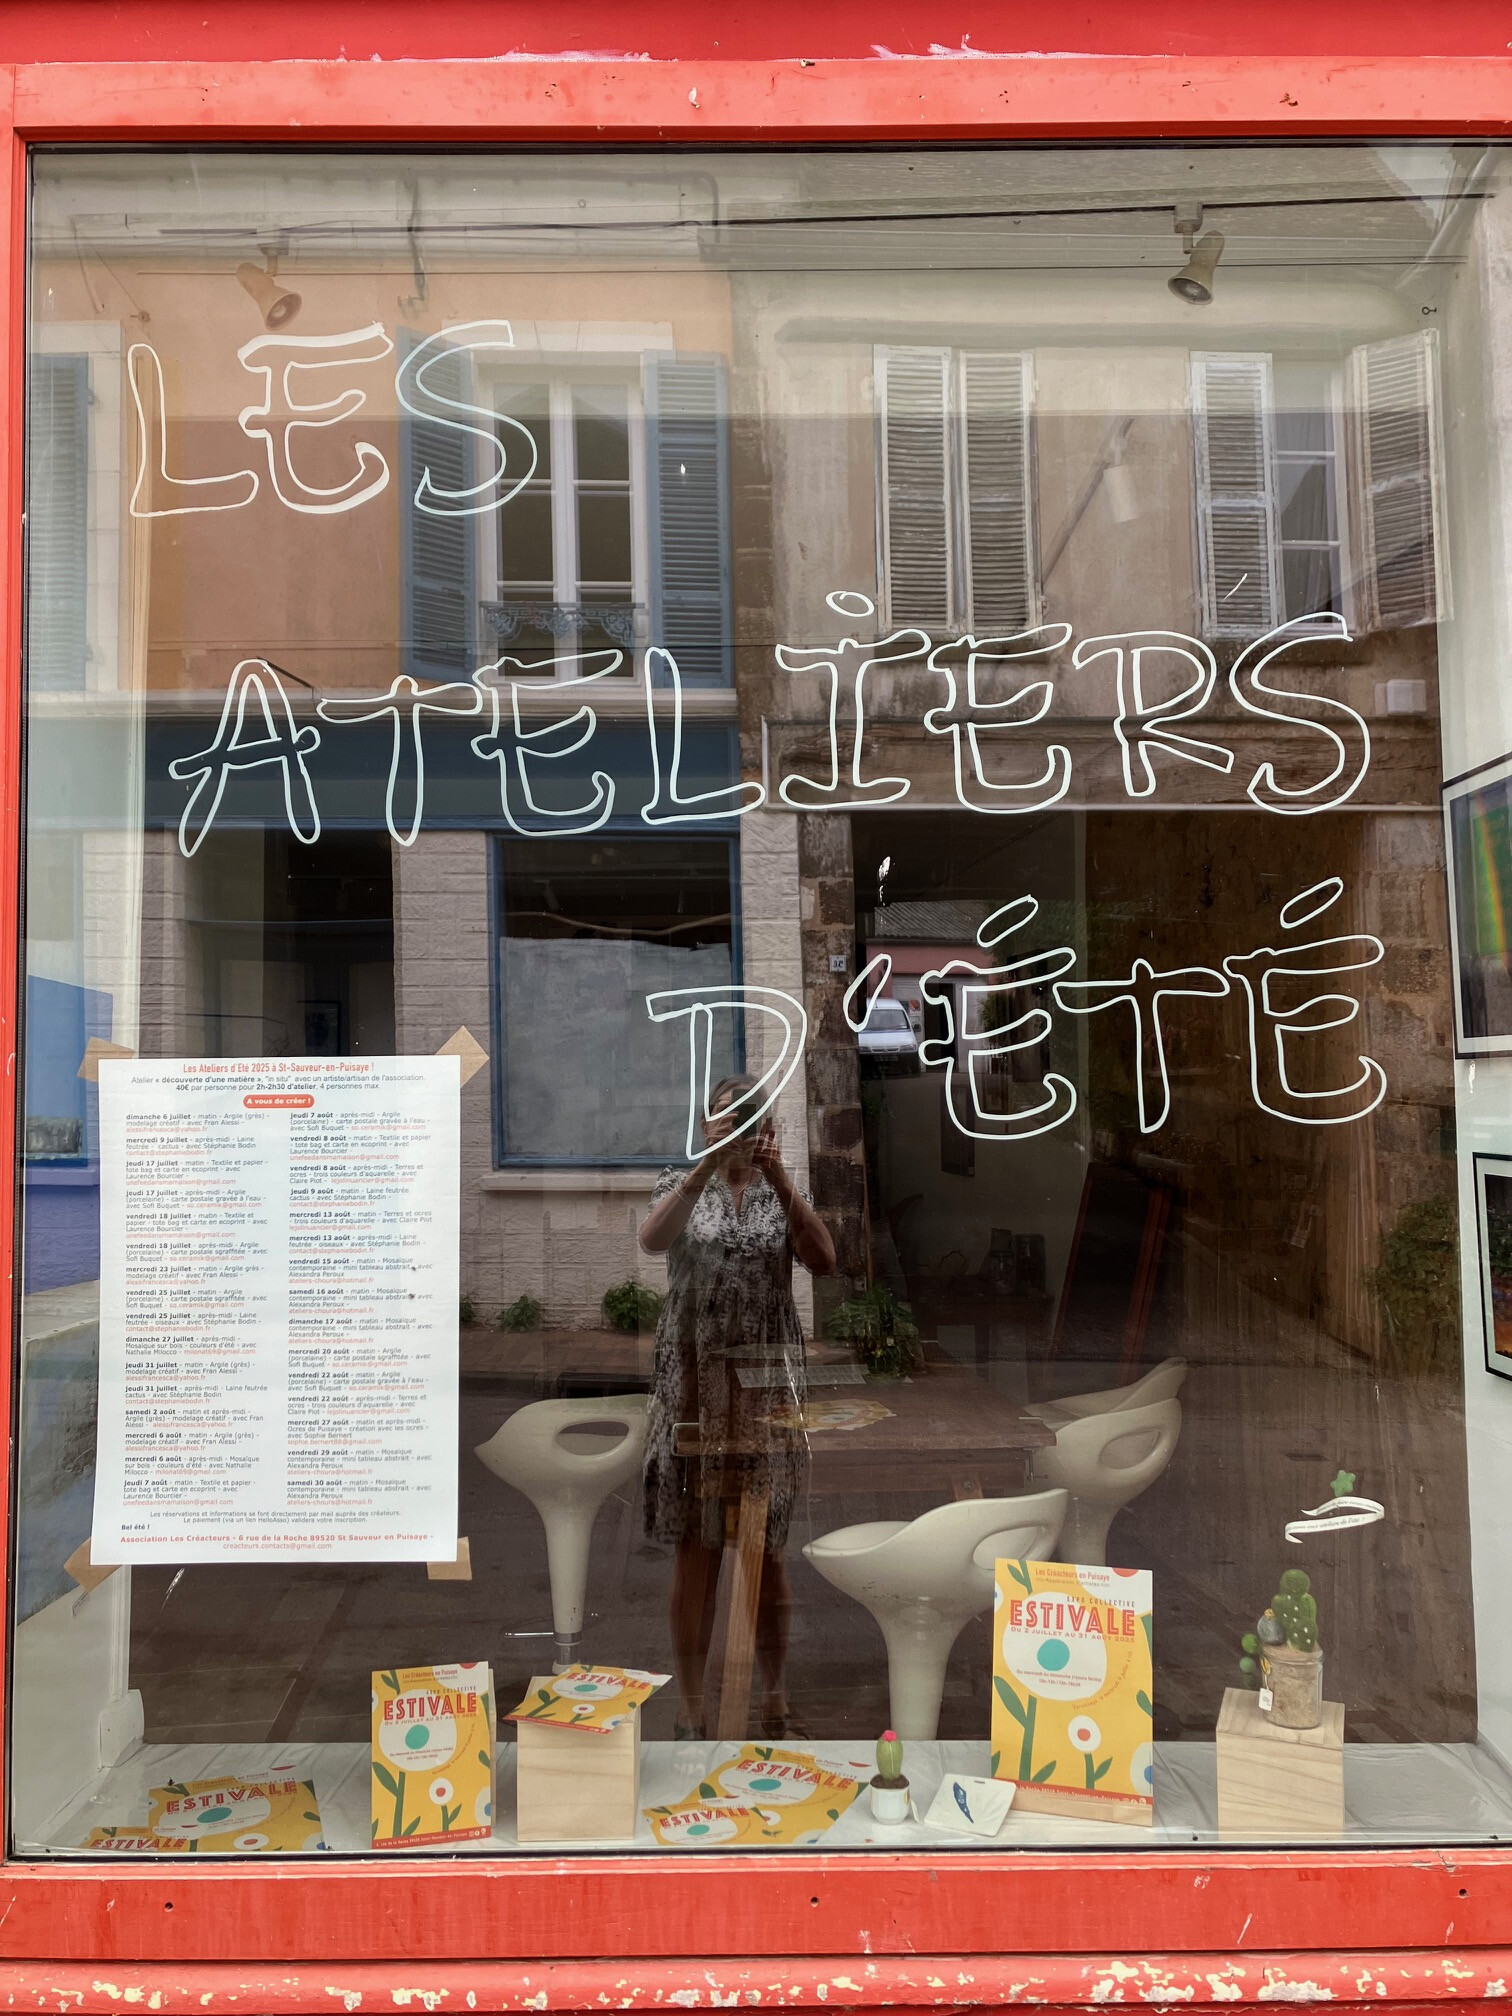 LES
ATELIERS
D'ÉTÉ
Les Ateliers d'Eté 2025 à St-Sauveur-en-Puisaye !
Atelier « découverte d'une matière », "in situ" avec un artiste/artisan de l'association.
40€ par personne pour 2h-2h30 d'atelier, 4 personnes max.
A vous de créer !
dimanche 6 juillet - matin - Argile (grès) -
modelage créatif - avec Fran Alessi -
alessifrancesca@yahoo.fr
mercredi 9 juillet - après-midi - Laine
feutrée - cactus - avec Stéphanie Bodin
contact@stephaniebodin.fr
jeudi 17 juillet - matin - Textile et papier -
tote bag et carte en ecoprint - avec
Laurence Bourcier -
unefeedansmamaison@gmail.com
jeudi 17 juillet - après-midi - Argile
(porcelaine) - carte postale gravée à l'eau -
avec Sofi Buquet - so.ceramik@gmail.com
vendredi 18 juillet - matin - Textile et
papier - tote bag et carte en ecoprint - avec
Laurence Bourcier -
unefeedansmamaison@gmail.com
vendredi 18 juillet - après-midi - Argile
(porcelaine) - carte postale sgraffitée - avec
Sofi Buquet - so.ceramik@gmail.com
mercredi 23 juillet - matin - Argile grès -
modelage créatif - avec Fran Alessi -
alessifrancesca@yahoo.fr
vendredi 25 juillet - matin - Argile
(porcelaine) - carte postale gravée à l'eau - avec
Sofi Buquet - so.ceramik@gmail.com
vendredi 25 juillet - après-midi - Laine
feutrée - oiseaux - avec Stéphanie Bodin -
contact@stephaniebodin.fr
dimanche 27 juillet - après-midi -
Mosaïque sur bois - couleurs d'été - avec
Nathalie Milocco - milonat69@gmail.com
jeudi 31 juillet - matin - Argile (grès) -
modelage créatif - avec Fran Alessi -
alessifrancesca@yahoo.fr
jeudi 31 juillet - après-midi - Laine feutrée
cactus - avec Stéphanie Bodin
contact@stephaniebodin.fr
samedi 2 août - matin et après-midi -
Argile (grès) - modelage créatif - avec Fran
Alessi - alessifrancesca@yahoo.fr
mercredi 6 août - matin - Argile (grès) -
modelage créatif - avec Fran Alessi -
alessifrancesca@yahoo.fr
mercredi 6 août - après-midi - Mosaïque
sur bois - couleurs d'été - avec Nathalie
Milocco - milonat69@gmail.com
jeudi 7 août - matin - Textile et papier -
tote bag et carte en ecoprint - avec
Laurence Bourcier
unefeedansmamaison@gmail.com
jeudi 7 août - après-midi - Argile
(porcelaine) - carte postale gravée à l'eau -
avec Sofi Buquet - so.ceramik@gmail.com
vendredi 8 août - matin - Textile et papier
- tote bag et carte en ecoprint - avec
Laurence Bourcier -
unefeedansmamaison@gmail.com
vendredi 8 août - après-midi - Terres et
ocres - trois couleurs d'aquarelle - avec
Claire Piot - lejolinuancier@gmail.com
jeudi 9 août - matin - Laine feutrée
cactus - avec Stéphanie Bodin -
contact@stephaniebodin.fr
mercredi 13 août - matin - Terres et ocres
- trois couleurs d'aquarelle - avec Claire Piot
lejolinuancier@gmail.com
mercredi 13 août - après-midi - Laine
feutrée - oiseaux - avec Stéphanie Bodin -
contact@stephaniebodin.fr
vendredi 15 août - matin - Mosaïque
contemporaine - mini tableau abstrait - avec
Alexandra Peroux
ateliers-choura@hotmail.fr
samedi 16 août - matin - Mosaïque
contemporaine - mini tableau abstrait - avec
Alexandra Peroux -
ateliers-choura@hotmail.fr
dimanche 17 août - matin - Mosaïque
contemporaine - mini tableau abstrait - avec
Alexandra Peroux -
ateliers-choura@hotmail.fr
mercredi 20 août - matin - Argile
(porcelaine) - carte postale sgraffitée - avec
Sofi Buquet - so.ceramik@gmail.com
vendredi 22 août - matin - Argile
(porcelaine) - carte postale gravée à l'eau -
avec Sofi Buquet - so.ceramik@gmail.com
vendredi 22 août - après-midi - Terres et
ocres - trois couleurs d'aquarelle - avec
Claire Piot - lejolinuancier@gmail.com
mercredi 27 août - matin et après-midi -
Ocres de Puisaye - création avec les ocres -
avec Sophie Bernert
sophie.bernert88@gmail.com
vendredi 29 août - matin - Mosaïque
contemporaine - mini tableau abstrait - avec
Alexandra Peroux
ateliers-choura@hotmail.fr
samedi 30 août - matin - Mosaïque
contemporaine - mini tableau abstrait - avec
Alexandra Peroux
ateliers-choura@hotmail.fr
Les réservations et informations se font directement par mail auprès des créateurs.
Le paiement (via un lien HelloAsso) validera votre inscription.
Bel été !
Association Les Créacteurs - 6 rue de la Roche 89520 St Sauveur en Puisaye -
creacteurs.contacts@gmail.com
Les Créacteurs en Puisaye
EXPO COLLECTIVE
ESTIVALE
DU 2 JUILLET AU 31 AOÛT 2025
ESTIVALE
Les Créacteurs en Puisaye
EXPO COLLECTIVE
ESTIVALE
DU 2 JUILLET AU 31 AOÛT 2025
Du mercredi au dimanche
ESTIVALE
ESTIVALE
ESTIVALE
ESTIVALE